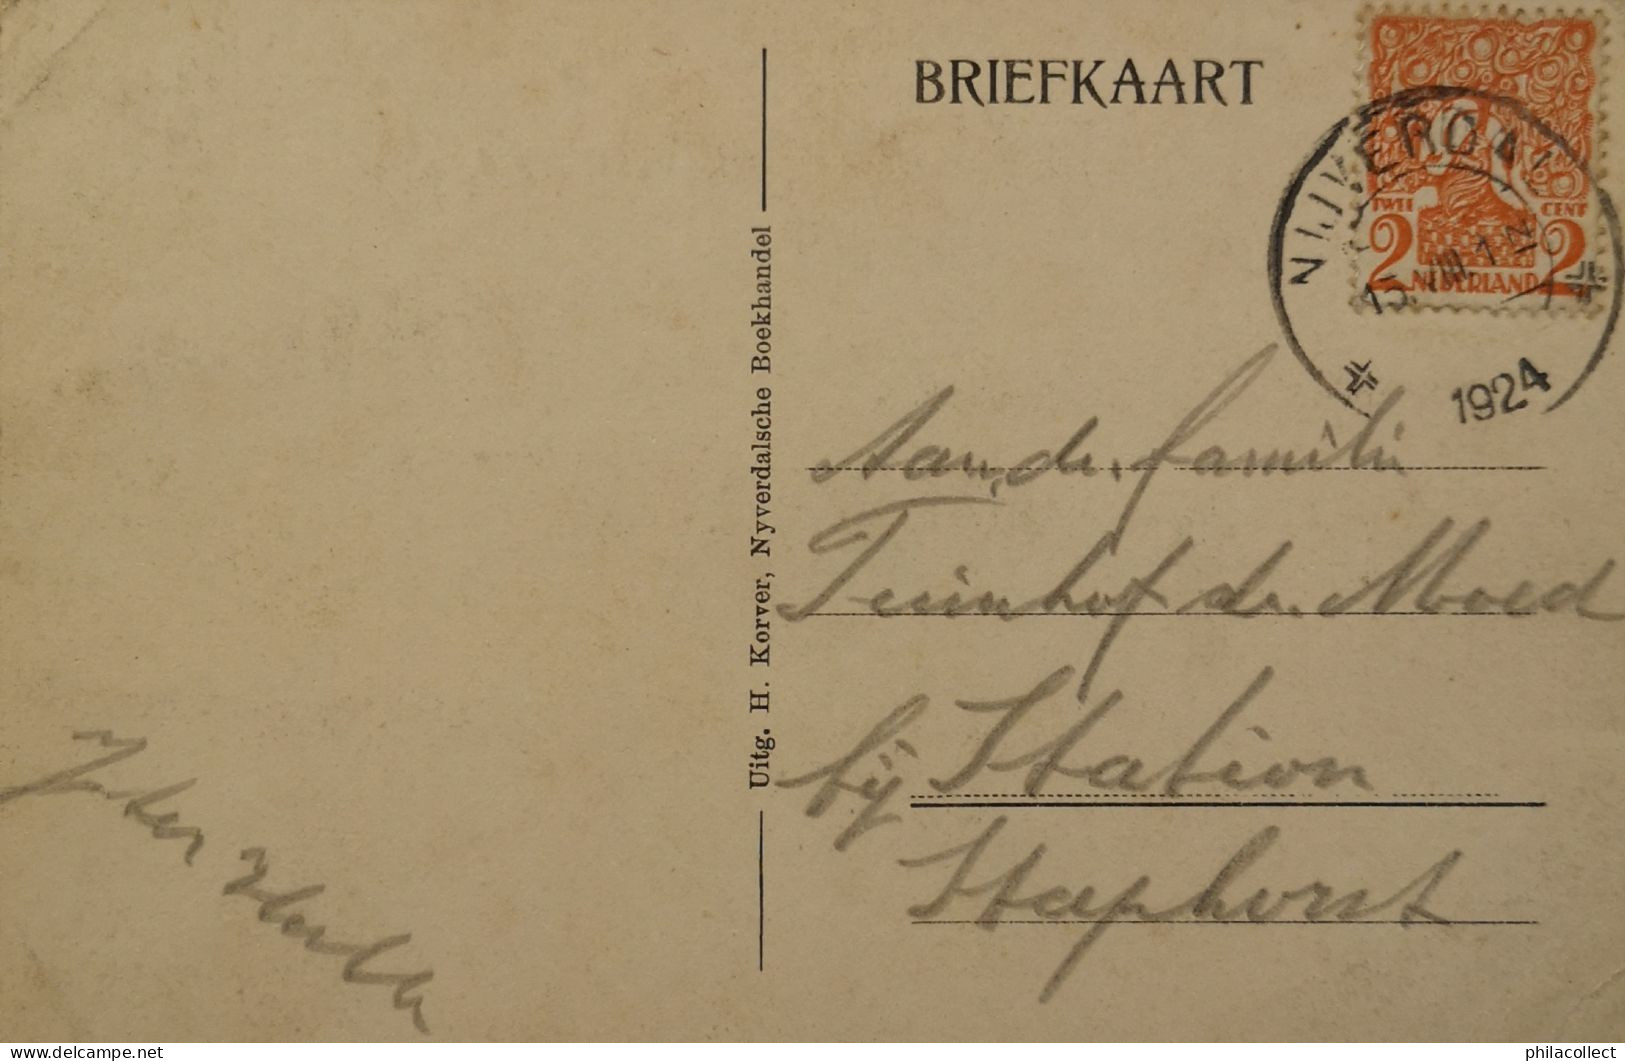 BRIEFKAART
NIJVERDAL
TWEE CENT
2 2
NEDERLAND
15. VIII. 12
1924
Uitg. H. Korver, Nyverdalsche Boekhandel
Aan de familie
de
bij Station
Staphorst
delcampe.net
philacollect